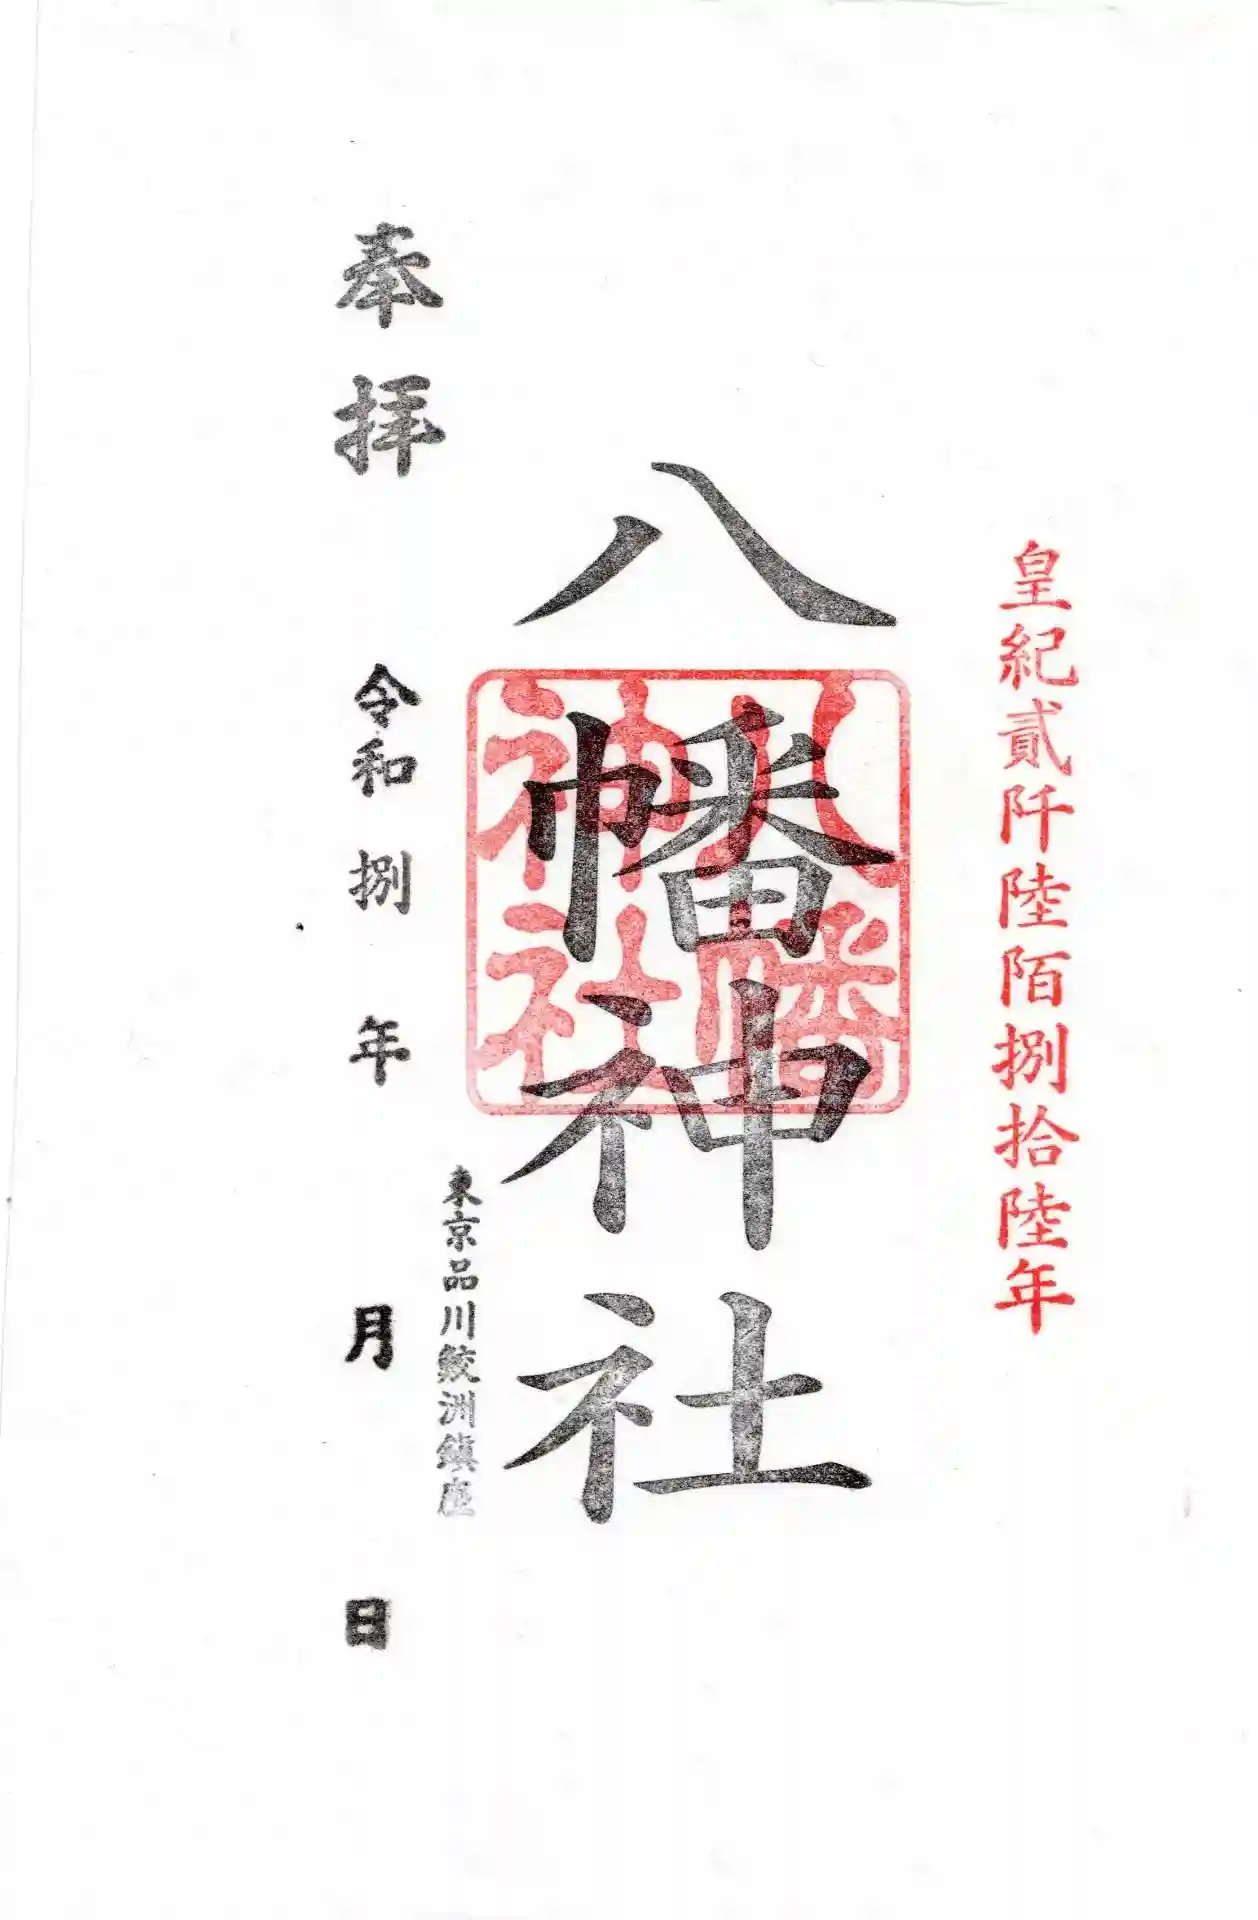 皇紀貳阡陸陌捌拾陸年
八幡神社
八幡
神社
東京品川鮫洲鎮座
奉拝
令和捌年月日